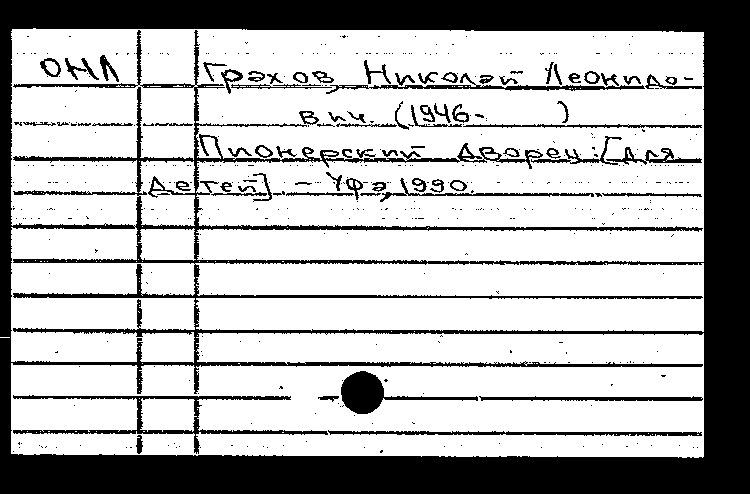 ОНЛ Грахов, Николай Леонидо-
вич. (1946- )
Пионерский дворец: [для
детей]. – Уфа, 1990.